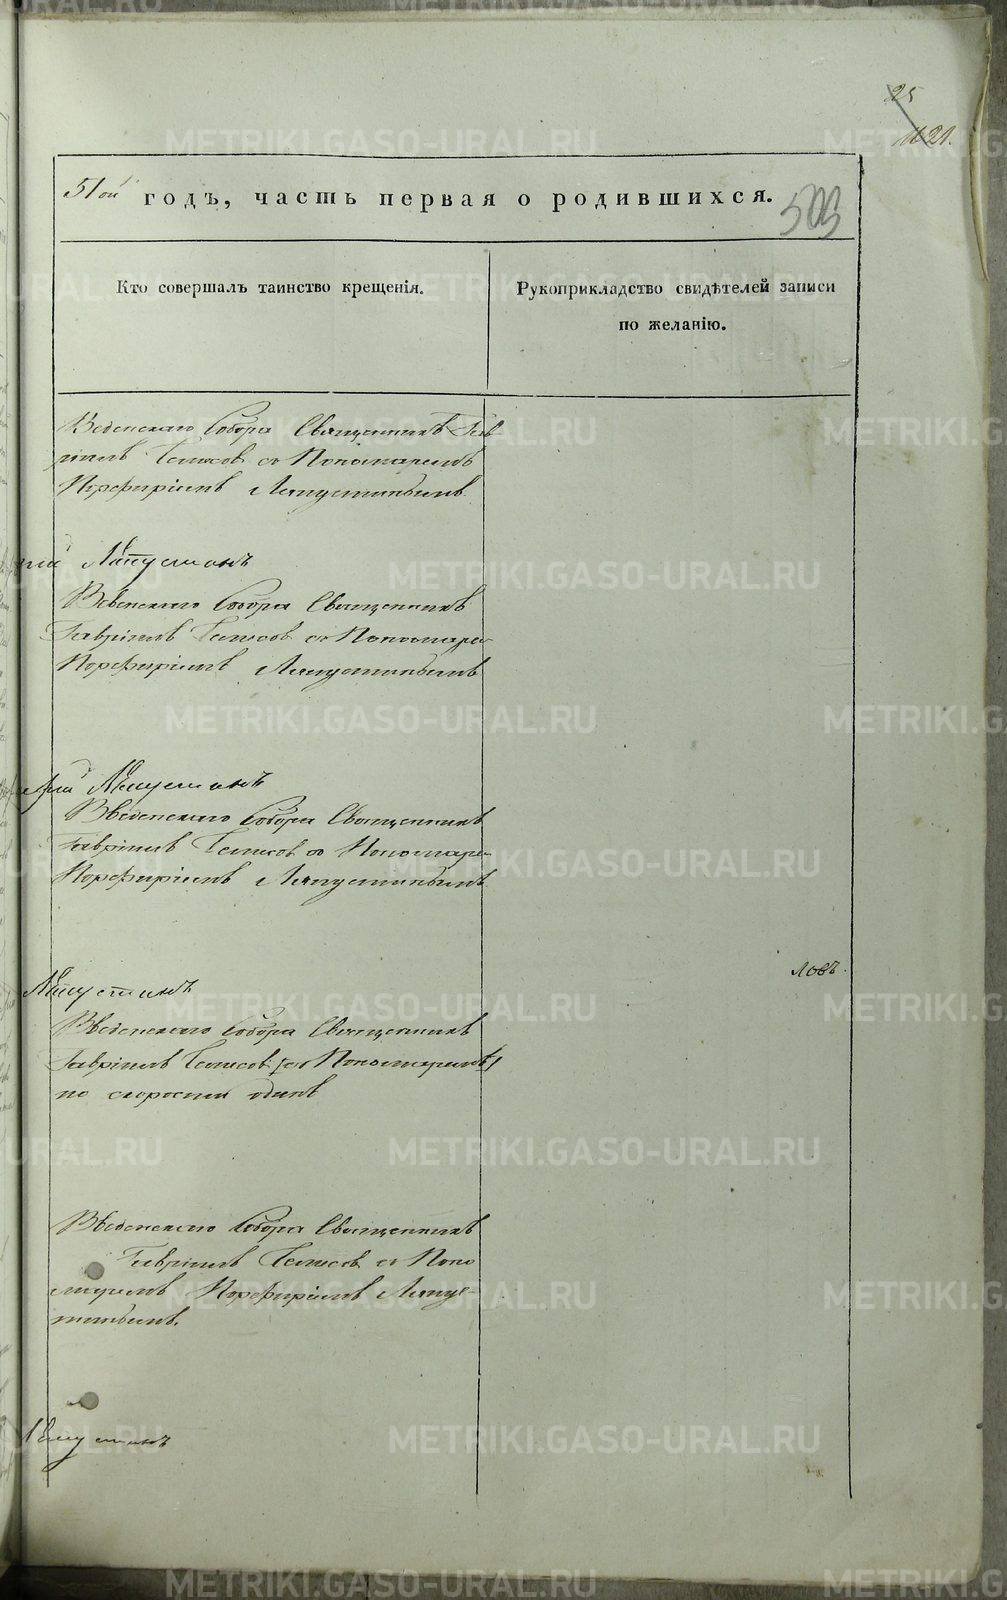 25
1121.
51ой годъ, часть первая о родившихся.
503
Кто совершалъ таинство крещенія.
Рукоприкладство свидѣтелей записи
по желанію.
Введенскаго Собора Священникъ Гав-
ріилъ съ Пономаремъ
Порфиріемъ Ляпустинымъ
Ляпустинъ
Введенскаго Собора Священникъ
Гавріилъ съ Пономаре
Порфиріемъ Ляпустинымъ
Ляпустинъ
Введенскаго Собора Священникъ
Гавріилъ съ Пономаре
Порфиріемъ Ляпустинымъ
ловъ.
Ляпустинъ
Введенскаго Собора Священникъ
Гавріилъ (съ Пономаремъ)
по скорости одинъ
Введенскаго Собора Священникъ
Гавріилъ съ Поно
маремъ Порфиріемъ Ляпус-
тинымъ.
Ляпустинъ
METRIKI.GASO-URAL.RU